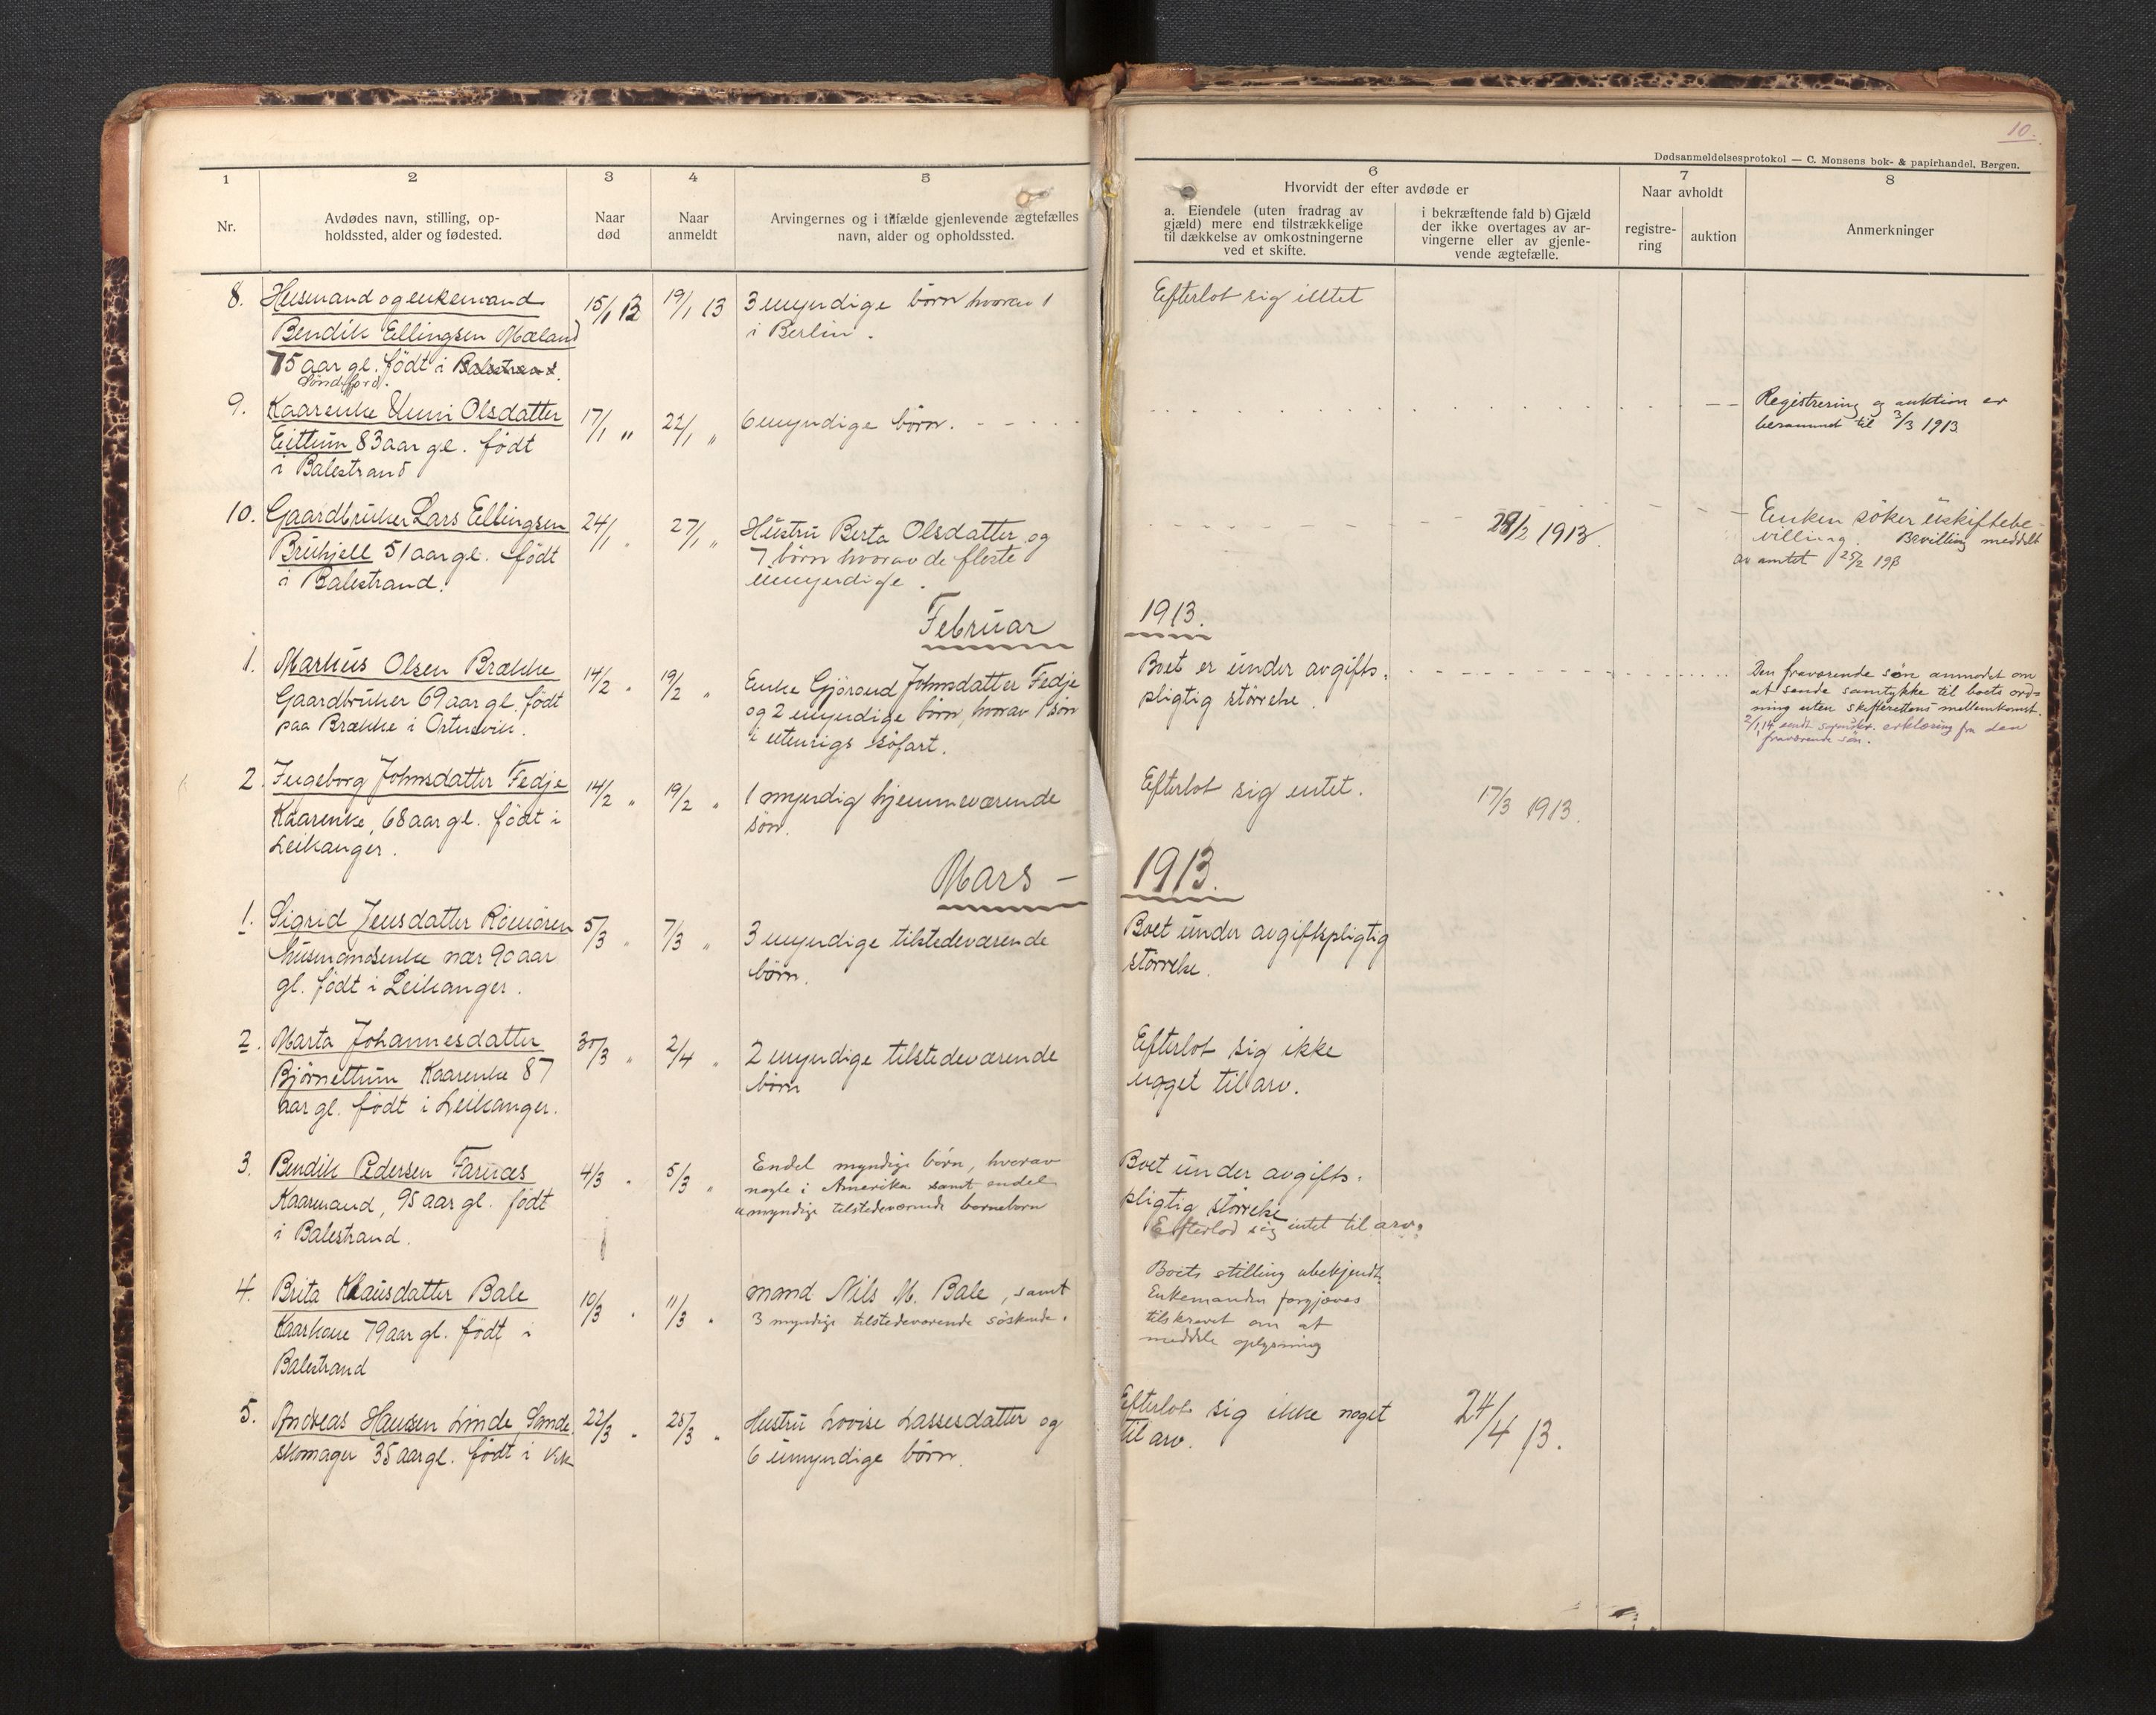 10.
Dødsanmeldelsesprotokol — C. Monsens bok- & papirhandel, Bergen.
1
2
3
4
5
6
7
8
Nr.
Avdødes navn, stilling, op-
holdssted, alder og fødested.
Naar
død
Naar
anmeldt
Arvingernes og i tilfælde gjenlevende ægtefælles
navn, alder og opholdssted.
Hvorvidt der efter avdøde er
a. Eiendele (uten fradrag av
gjæld) mere end tilstrækkelige
til dækkelse av omkostningerne
ved et skifte.
i bekræftende fald b) Gjæld
der ikke overtages av ar-
vingerne eller av gjenle-
vende ægtefælle.
Naar avholdt
registre-
ring
auktion
Anmerkninger
8.
Husmand og enkemand
Bendik Ellingsen Mæland
75 aar gl. födt i Balestrand.
Söndfjord.
15/1 13
19/1 13
3 umyndige börn hvorav 1
i Berlin.
Efterlot sig intet
9.
Kaarenke Unni Olsdatter
Eittum 83 aar gl. födt
i Balestrand
17/1 "
22/1 "
6 myndige börn.
Registrering og auktion er
berammet til 3/3 1913
10.
Gaardbruker Lars Ellingsen
Bruhjell 51 aar gl. födt
i Balestrand.
24/1 "
27/1 "
Hustru Berta Olsdatter og
7 börn hvorav de fleste
umyndige.
/2 1913.
Enken söker uskiftebe-
villing. Bevilling meddelt
av amtet 25/2 1913
Februar 1913.
1.
Markus Olsen Brække
Gaardbruker 69 aar gl. födt
paa Brække i Ortnevik.
14/2 "
19/2 "
Enke Gjörond Johnsdatter Fedje
og 2 myndige börn, hvorav 1 sön
i utenrigs söfart.
Boet er under avgifts-
pligtig störrelse.
Den fraværende sön anmodet om
at sende samtykke til boets ord-
ning uten skifterettens mellemkomst.
2/1 14 sendt erklæring fra den
fraværende sön.
2.
Ingeborg Johnsdatter Fedje
Kaarenke, 68 aar gl. födt i
Leikanger.
14/2 "
19/2 "
1 myndig hjemmeværende
sön.
Efterlot sig intet.
17/3 1913.
Mars - 1913.
1.
Sigrid Jensdatter Römören
husmandsenke nær 90 aar
gl. födt i Leikanger.
5/3 "
7/3 "
3 myndige tilstedeværende
börn.
Boet under avgiftspligtig
störrelse.
2.
Marta Johannesdatter
Björnettum Kaarenke 87
aar gl. födt i Leikanger.
30/3 "
2/4 "
2 myndige tilstedeværende
börn
Efterlot sig ikke
noget til arv.
3.
Bendik Pedersen Farnæs
Kaarmand, 95 aar gl. födt
i Balestrand.
4/3 "
5/3 "
Endel myndige börn, hvorav
nogle i Amerika samt endel
umyndige tilstedeværende barnebarn
Boet under avgifts-
pligtig störrelse
Efterlod sig intet til arv.
4.
Brita Klausdatter Bale
Kaarkone 79 aar gl. födt i
Balestrand
10/3 "
11/3 "
mand Nils M. Bale, samt
3 myndige tilstedeværende söskende.
Boets stilling ubekjendt.
Enkemanden forgjæves
tilskrevet om at
meddele oplysning
5.
Andreas Hansen Linde, Sande
skomager 35 aar gl. födt i Vik
22/3 "
25/3 "
Hustru Lovise Lassesdatter og
6 umyndige börn.
Efterlot sig ikke noget
til arv.
24/4 13.